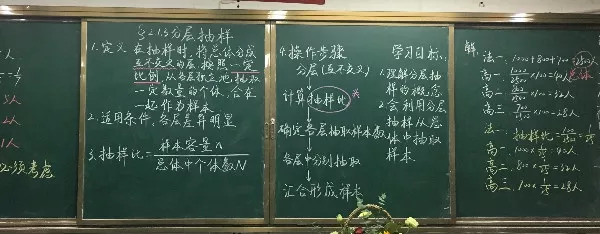 §2.1.3分层抽样
1.定义 在抽样时,将总体分成
互不交叉的层,按照一定
比例,从各层独立地抽取
一定数量的个体,合在
一起作为样本
2.适用条件:各层差异明显
3.抽样比=样本容量n/总体中个体数N
4.操作步骤
分层(互不交叉)
↓
计算抽样比*
↓
确定各层抽取样本数
↓
各层中分别抽取
↓
汇合形成样本
学习目标:
1.理解分层抽
样的概念
2.会利用分层
抽样从总
体中抽取
样本.
解:
法一:1000+800+700=2500人
总体
高一:1000/2500×100=40人
高二:800/2500×100=32人
高三:700/2500×100=28人
法二:抽样比=100/2500=1/25
高一:1000×1/25=40人
高二:800×1/25=32人
高三:700×1/25=28人
人
5人
2人
1人
必须考虑